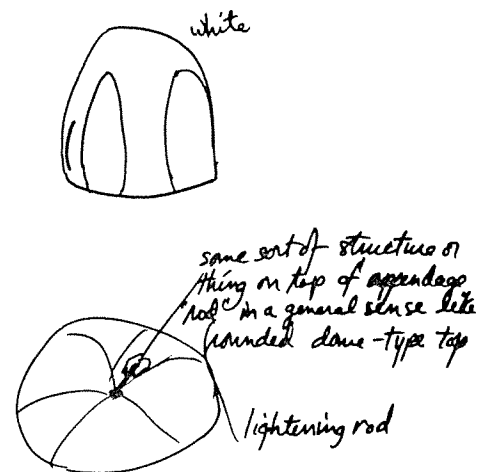 white
some sort of structure or
thing on top of appendage
"rod" in a general sense like
rounded dome-type top
lightening rod